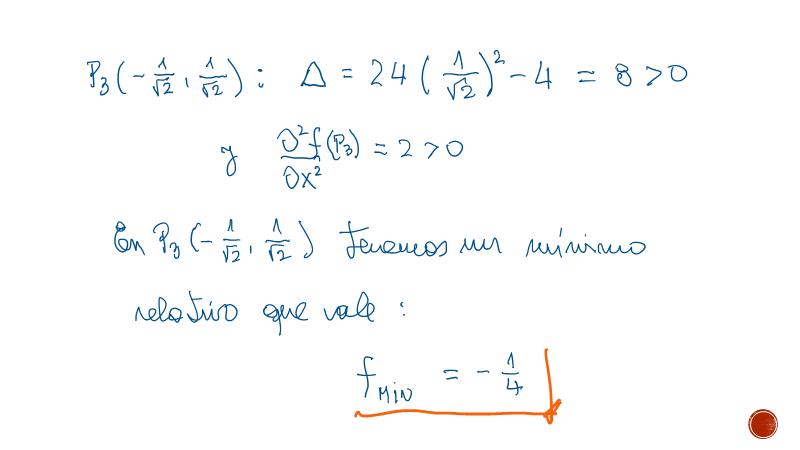 P₃(-1/√2, 1/√2): Δ = 24(1/√2)² - 4 = 8 > 0
y ∂²f/∂x² (P₃) = 2 > 0
En P₃(-1/√2, 1/√2) tenemos un mínimo
relativo que vale:
f_MIN = -1/4